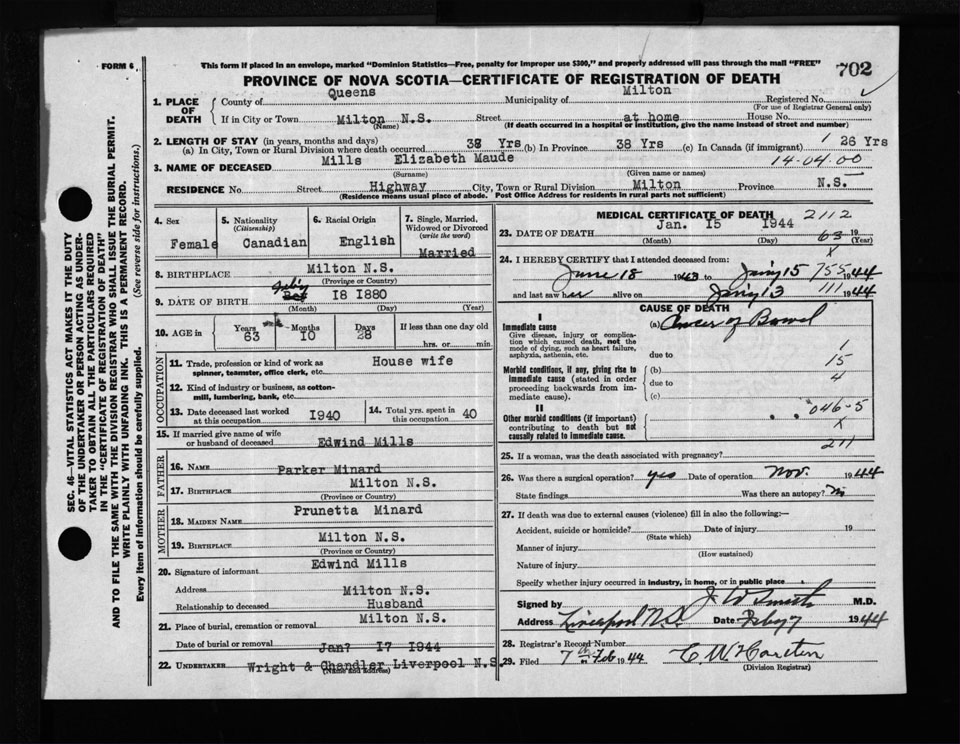 FORM 6
This form if placed in an envelope, marked "Dominion Statistics—Free, penalty for improper use $300," and properly addressed will pass through the mail "FREE"
702
PROVINCE OF NOVA SCOTIA—CERTIFICATE OF REGISTRATION OF DEATH
1. PLACE OF DEATH County of Queens Municipality of Milton Registered No.
(For use of Registrar General only)
If in City or Town Milton N.S. Street at home House No.
(Name) (If death occurred in a hospital or institution, give the name instead of street and number)
2. LENGTH OF STAY (in years, months and days)
(a) In City, Town or Rural Division where death occurred 38 Yrs (b) In Province 38 Yrs (c) In Canada (if immigrant) 1 26 Yrs
3. NAME OF DECEASED Mills Elizabeth Maude 14-04-00
(Surname) (Given name or names)
RESIDENCE No. Street Highway City, Town or Rural Division Milton Province N.S.
(Residence means usual place of abode. Post Office Address for residents in rural parts not sufficient)
4. Sex Female
5. Nationality (Citizenship) Canadian
6. Racial Origin English
7. Single, Married, Widowed or Divorced (write the word) Married
8. BIRTHPLACE Milton N.S.
(Province or Country)
9. DATE OF BIRTH I8 I880
(Month) (Day) (Year)
10. AGE in Years 63 Months I0 Days 28 If less than one day old hrs. or min.
OCCUPATION
11. Trade, profession or kind of work as spinner, teamster, office clerk, etc. House wife
12. Kind of industry or business, as cotton-mill, lumbering, bank, etc.
13. Date deceased last worked at this occupation I940
14. Total yrs. spent in this occupation 40
15. If married give name of wife or husband of deceased Edwind Mills
FATHER
16. NAME Parker Minard
17. BIRTHPLACE Milton N.S.
(Province or Country)
MOTHER
18. MAIDEN NAME Prunetta Minard
19. BIRTHPLACE Milton N.S.
(Province or Country)
20. Signature of informant Edwind Mills
Address Milton N.S.
Relationship to deceased Husband
21. Place of burial, cremation or removal Milton N.S.
Date of burial or removal Jan? I7 I944
22. UNDERTAKER Wright & Chandler Liverpool N.S.
(Name and address)
MEDICAL CERTIFICATE OF DEATH 2112
23. DATE OF DEATH Jan. I5 I944 19
(Month) (Day) (Year)
63
24. I HEREBY CERTIFY that I attended deceased from:
June 18 1943 to Jan'y 15 755 1944
and last saw her alive on Jan'y 13 111 1944
CAUSE OF DEATH
I
Immediate cause
Give disease, injury or complication which caused death, not the mode of dying, such as heart failure, asphyxia, asthenia, etc.
(a) Cancer of Bowel
due to
1
15
4
Morbid conditions, if any, giving rise to immediate cause (stated in order proceeding backwards from immediate cause).
(b)
due to
(c)
II
Other morbid conditions (if important) contributing to death but not causally related to immediate cause.
046-5
X
211
25. If a woman, was the death associated with pregnancy?
26. Was there a surgical operation? yes Date of operation Nov. 1944
State findings Was there an autopsy? no
27. If death was due to external causes (violence) fill in also the following:
Accident, suicide or homicide? Date of injury 19
(State which)
Manner of injury
(How sustained)
Nature of injury
Specify whether injury occurred in industry, in home, or in public place
Signed by J W Smith M.D.
Address Liverpool N.S. Date Feby 7 1944
28. Registrar's Record Number
29. Filed 7th Feb 1944
(Division Registrar)
SEC. 46—VITAL STATISTICS ACT MAKES IT THE DUTY
OF THE UNDERTAKER OR PERSON ACTING AS UNDER-
TAKER TO OBTAIN ALL THE PARTICULARS REQUIRED
IN THE "CERTIFICATE OF REGISTRATION OF DEATH"
AND TO FILE THE SAME WITH THE DIVISION REGISTRAR WHO SHALL ISSUE THE BURIAL PERMIT.
WRITE PLAINLY WITH UNFADING INK. THIS IS A PERMANENT RECORD.
Every item of information should be carefully supplied. (See reverse side for instructions.)